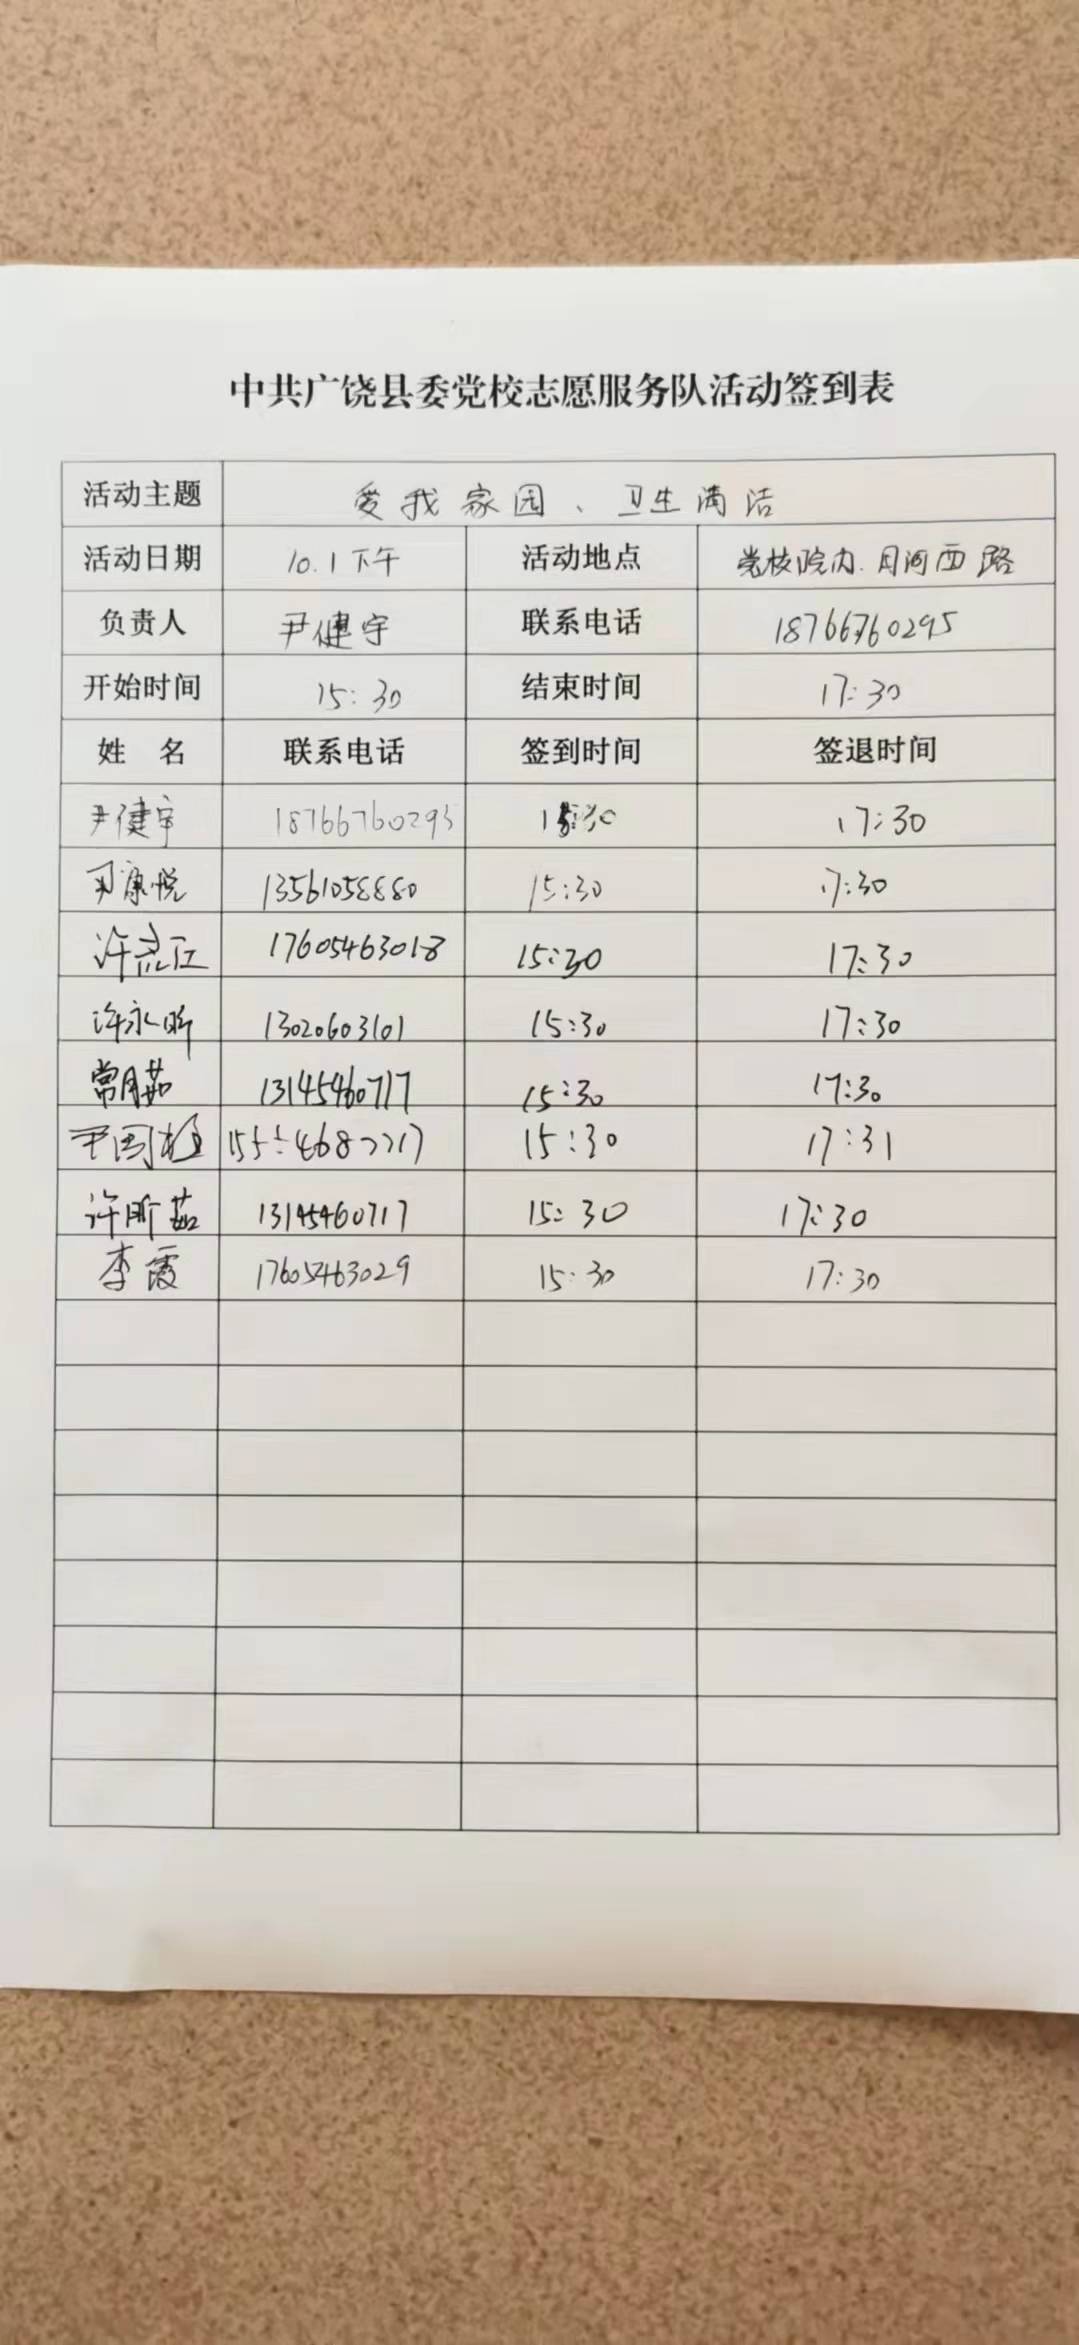 中共广饶县委党校志愿服务队活动签到表
活动主题 爱我家园、卫生清洁
活动日期 10.1下午 活动地点 党校院内.月河西路
负责人 尹健宇 联系电话 18766760295
开始时间 15:30 结束时间 17:30
姓 名 联系电话 签到时间 签退时间
尹健宇 18766760295 15:30 17:30
康悦 13561058880 15:30 17:30
许 17605463018 15:30 17:30
许永昕 13020603101 15:30 17:30
常月茹 13145460717 15:30 17:30
尹国 15:30 17:31
许昕茹 13145460717 15:30 17:30
李霞 17605463029 15:30 17:30